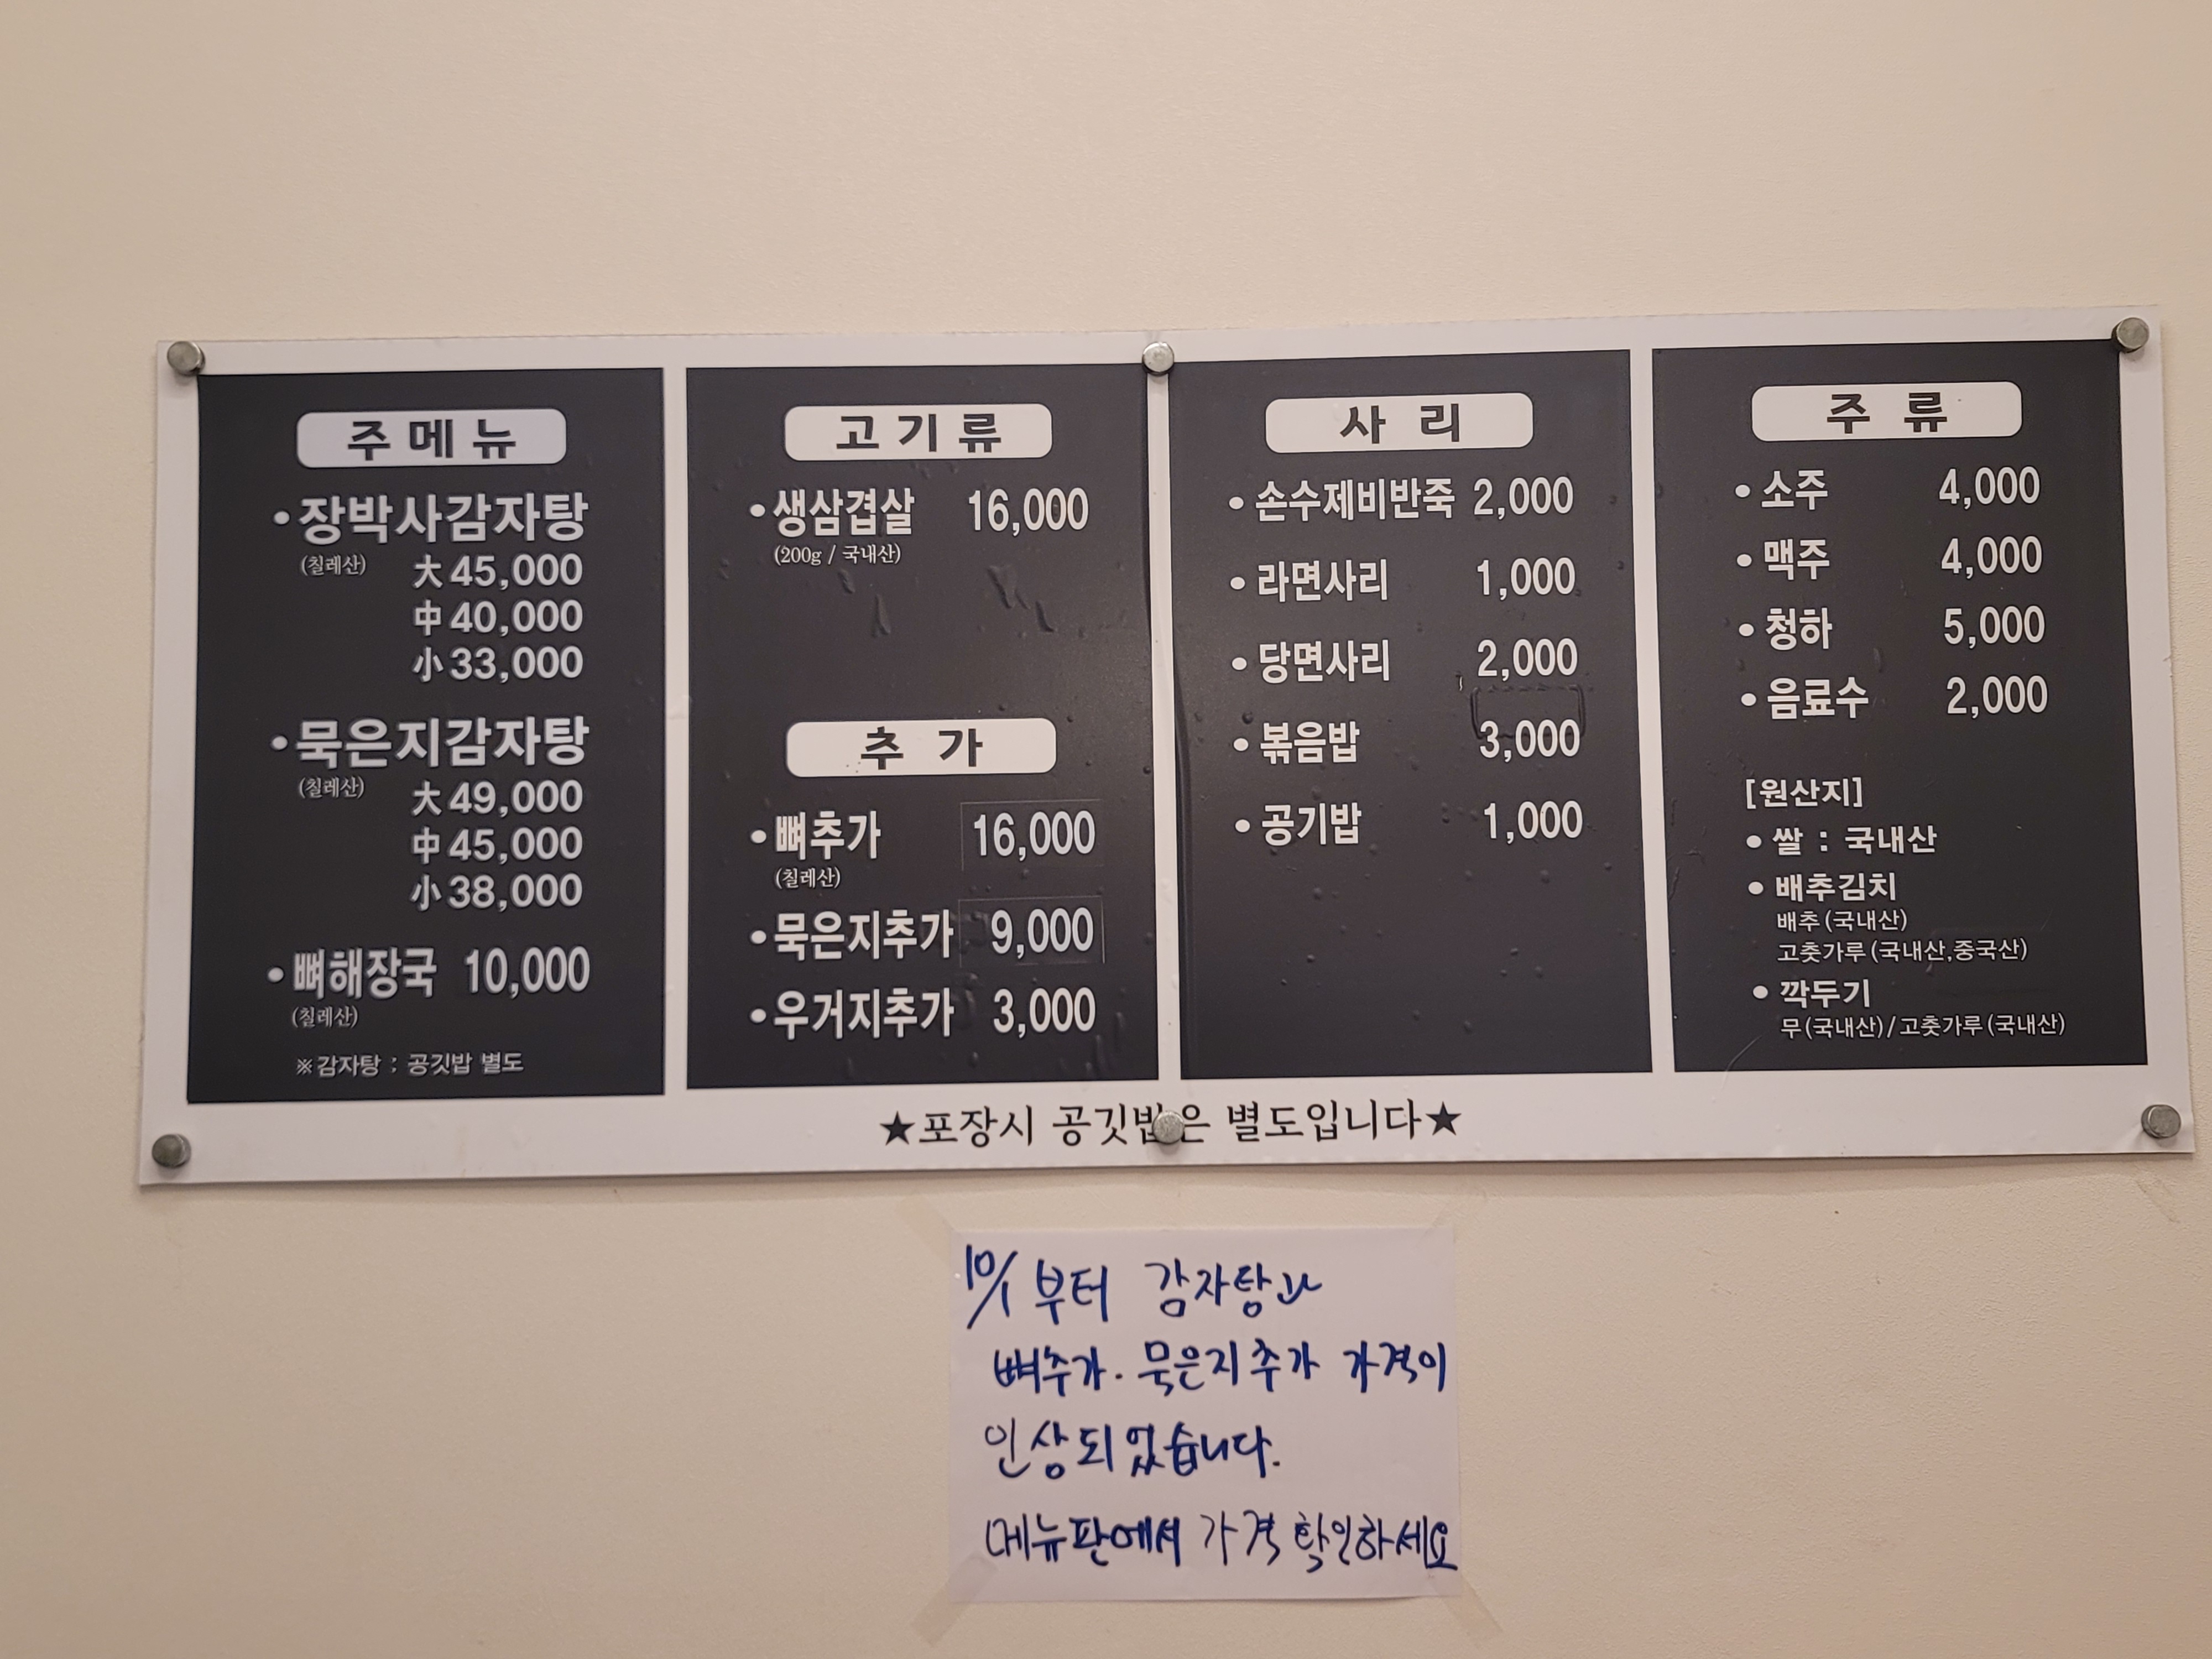 주메뉴
• 장박사감자탕
(칠레산) 大 45,000
中 40,000
小 33,000
• 묵은지감자탕
(칠레산) 大 49,000
中 45,000
小 38,000
• 뼈해장국 10,000
(칠레산)
※ 감자탕 : 공깃밥 별도
고기류
• 생삼겹살 16,000
(200g / 국내산)
추 가
• 뼈추가 16,000
(칠레산)
• 묵은지추가 9,000
• 우거지추가 3,000
사 리
• 손수제비반죽 2,000
• 라면사리 1,000
• 당면사리 2,000
• 볶음밥 3,000
• 공기밥 1,000
주 류
• 소주 4,000
• 맥주 4,000
• 청하 5,000
• 음료수 2,000
[원산지]
• 쌀 : 국내산
• 배추김치
배추(국내산)
고춧가루(국내산,중국산)
• 깍두기
무(국내산)/고춧가루(국내산)
★포장시 공깃밥은 별도입니다★
10/1 부터 감자탕과
뼈추가. 묵은지추가 가격이
인상되었습니다.
메뉴판에서 가격 확인하세요